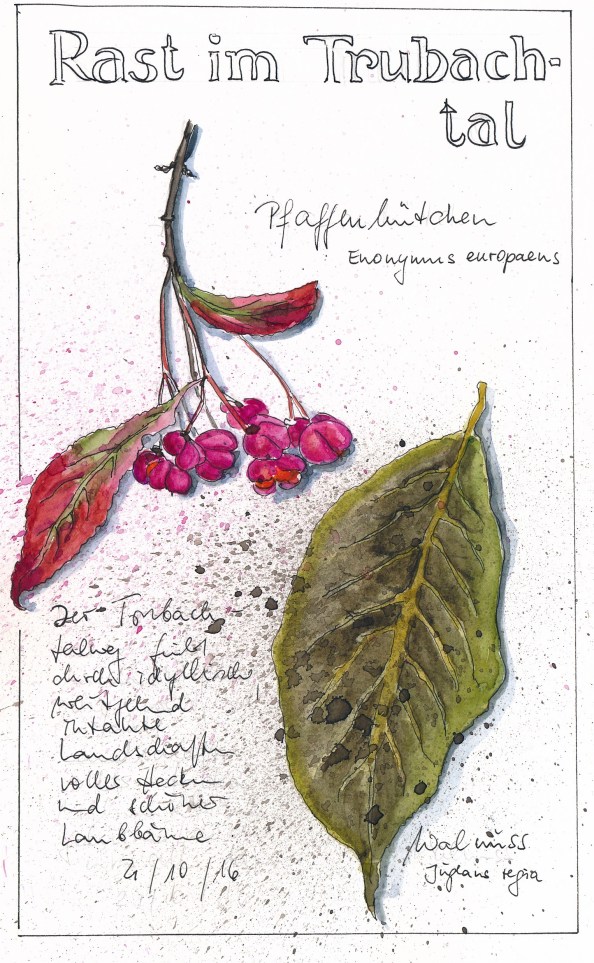 Rast im Trubach-
tal
Pfaffenhütchen
Euonymus europaeus
Der Trubach-
talweg führt
durch idyllische
weitgehend
intakte
Landschaften
voller Hecken
und schöner
Laubbäume
21/10/16
Walnuss
Juglans regia